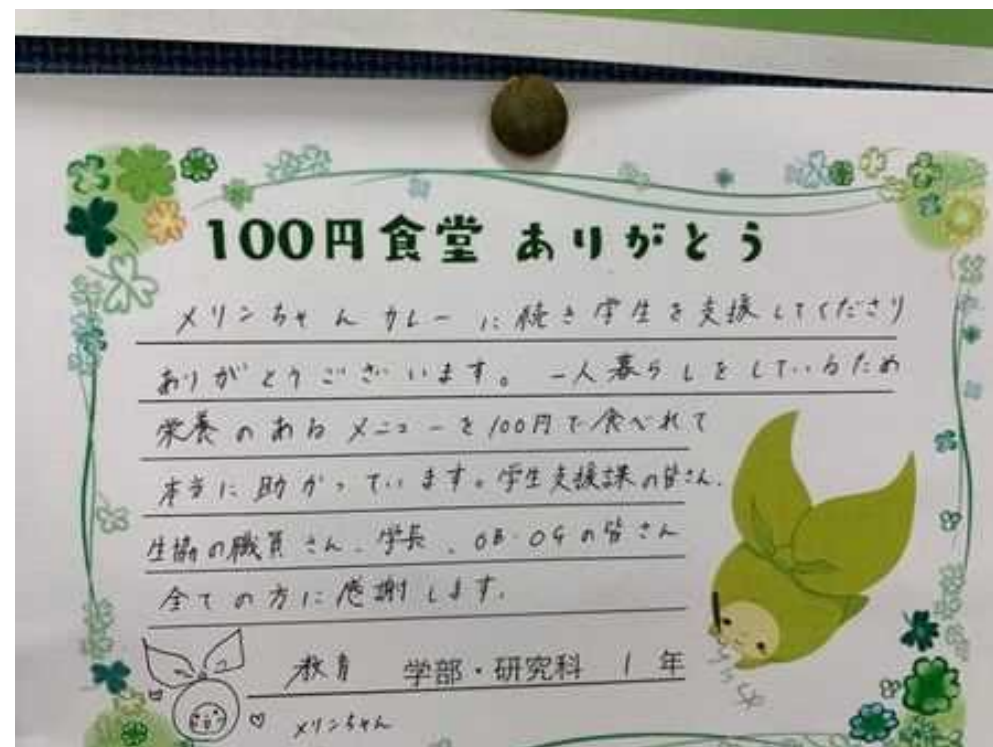 100円食堂 ありがとう
メリンちゃんカレーに続き学生を支援してくださり
ありがとうございます。一人暮らしをしているため
栄養のあるメニューを100円で食べれて
本当に助かっています。学生支援課の皆さん、
生協の職員さん、学長、OB・OGの皆さん
全ての方に感謝します。
教育 学部・研究科 1年
メリンちゃん